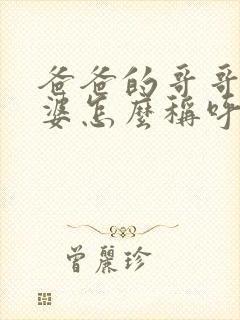 爸爸的哥哥
婆怎麼稱呼
曾麗珍